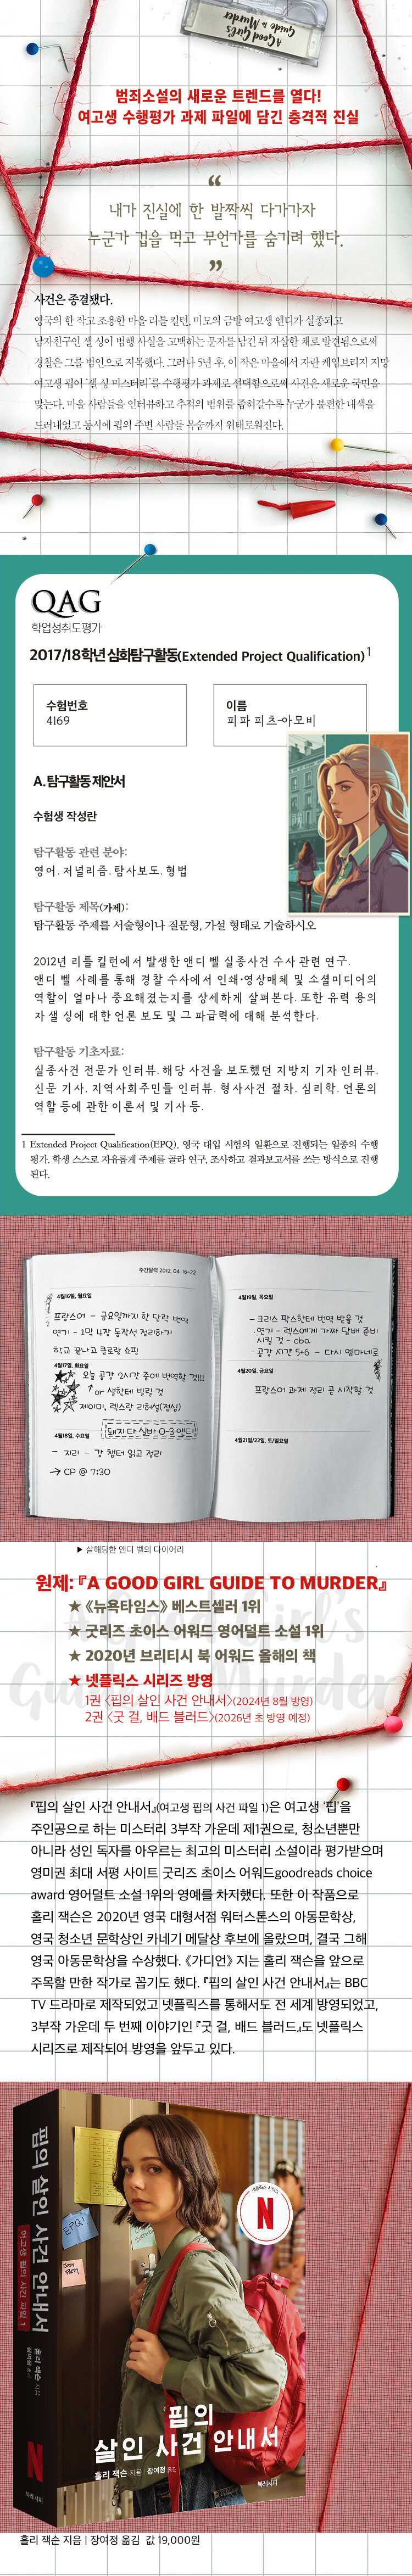 A Good Girl's
Guide to Murder
범죄소설의 새로운 트렌드를 열다!
여고생 수행평가 과제 파일에 담긴 충격적 진실
“
내가 진실에 한 발짝씩 다가가자
누군가 겁을 먹고 무언가를 숨기려 했다.
”
사건은 종결됐다.
영국의 한 작고 조용한 마을 리틀 킬턴. 미모의 금발 여고생 앤디가 실종되고
남자친구인 샐 싱이 범행 사실을 고백하는 문자를 남긴 뒤 자살한 채로 발견됨으로써
경찰은 그를 범인으로 지목했다. 그러나 5년 후, 이 작은 마을에서 자란 케임브리지 지망
여고생 핍이 '샐 싱 미스터리'를 수행평가 과제로 선택함으로써 사건은 새로운 국면을
맞는다. 마을 사람들을 인터뷰하고 추적의 범위를 좁혀갈수록 누군가 불편한 내색을
드러내었고 동시에 핍의 주변 사람들 목숨까지 위태로워진다.
QAG
학업성취도평가
2017/18학년 심화탐구활동(Extended Project Qualification)1
수험번호
4169
이름
피파 피츠-아모비
A. 탐구활동 제안서
수험생 작성란
탐구활동 관련 분야:
영어. 저널리즘. 탐사보도. 형법
탐구활동 제목(가제):
탐구활동 주제를 서술형이나 질문형, 가설 형태로 기술하시오
2012년 리틀 킬턴에서 발생한 앤디 벨 실종사건 수사 관련 연구.
앤디 벨 사례를 통해 경찰 수사에서 인쇄·영상매체 및 소셜미디어의
역할이 얼마나 중요해졌는지를 상세하게 살펴본다. 또한 유력 용의
자 샐 싱에 대한 언론 보도 및 그 파급력에 대해 분석한다.
탐구활동 기초자료:
실종사건 전문가 인터뷰. 해당 사건을 보도했던 지방지 기자 인터뷰.
신문 기사. 지역사회주민들 인터뷰. 형사사건 절차. 심리학. 언론의
역할 등에 관한 이론서 및 기사 등.
1 Extended Project Qualification(EPQ), 영국 대입 시험의 일환으로 진행되는 일종의 수행
평가. 학생 스스로 자유롭게 주제를 골라 연구, 조사하고 결과보고서를 쓰는 방식으로 진행
된다.
주간달력 2012. 04. 16~22
4월16일, 월요일
프랑스어 - 금요일까지 한 단락 번역
연기 - 1막 4장 동작선 정리하기
학교 끝나고 클로락 쇼핑
4월17일, 화요일
오늘 공강 2시간 중에 번역할 것!!!
or 샐한테 빌릴 것
제이미, 렉스랑 리허설(점심)
4월18일, 수요일
- 지리 - 강 챕터 읽고 정리
→ CP @ 7:30
4월19일, 목요일
- 크리스 팍스한테 번역 받을 것
- 연기 - 렉스에게 가짜 담배 준비
시킬 것 - cba
- 공강 시간 5+6 - 다시 엘마네로
4월20일, 금요일
프랑스어 과제 정리 꼭 시작할 것
4월21일/22일, 토/일요일
▶ 살해당한 앤디 벨의 다이어리
원제: 『A GOOD GIRL GUIDE TO MURDER』
★ 《뉴욕타임스》 베스트셀러 1위
★ 굿리즈 초이스 어워드 영어덜트 소설 1위
★ 2020년 브리티시 북 어워드 올해의 책
★ 넷플릭스 시리즈 방영
1권 〈핍의 살인 사건 안내서〉(2024년 8월 방영)
2권 〈굿 걸, 배드 블러드〉(2026년 초 방영 예정)
A Good Girl's
Guide to Murder
『핍의 살인 사건 안내서』(여고생 핍의 사건 파일 1)은 여고생 '핍'을
주인공으로 하는 미스터리 3부작 가운데 제1권으로, 청소년뿐만
아니라 성인 독자를 아우르는 최고의 미스터리 소설이라 평가받으며
영미권 최대 서평 사이트 굿리즈 초이스 어워드goodreads choice
award 영어덜트 소설 1위의 영예를 차지했다. 또한 이 작품으로
홀리 잭슨은 2020년 영국 대형서점 워터스톤스의 아동문학상,
영국 청소년 문학상인 카네기 메달상 후보에 올랐으며, 결국 그해
영국 아동문학상을 수상했다. 《가디언》지는 홀리 잭슨을 앞으로
주목할 만한 작가로 꼽기도 했다. 『핍의 살인 사건 안내서』는 BBC
TV 드라마로 제작되었고 넷플릭스를 통해서도 전 세계 방영되었고,
3부작 가운데 두 번째 이야기인 『굿 걸, 배드 블러드』도 넷플릭스
시리즈로 제작되어 방영을 앞두고 있다.
핍의 살인 사건 안내서
여고생 핍의 사건 파일 1
홀리 잭슨 지음
장여정 옮김
N
북레시피
넷플릭스 시리즈
N
EPQ!
핍의
살인 사건 안내서
홀리 잭슨 지음 | 장여정 옮김
북레시피
홀리 잭슨 지음 | 장여정 옮김 값 19,000원